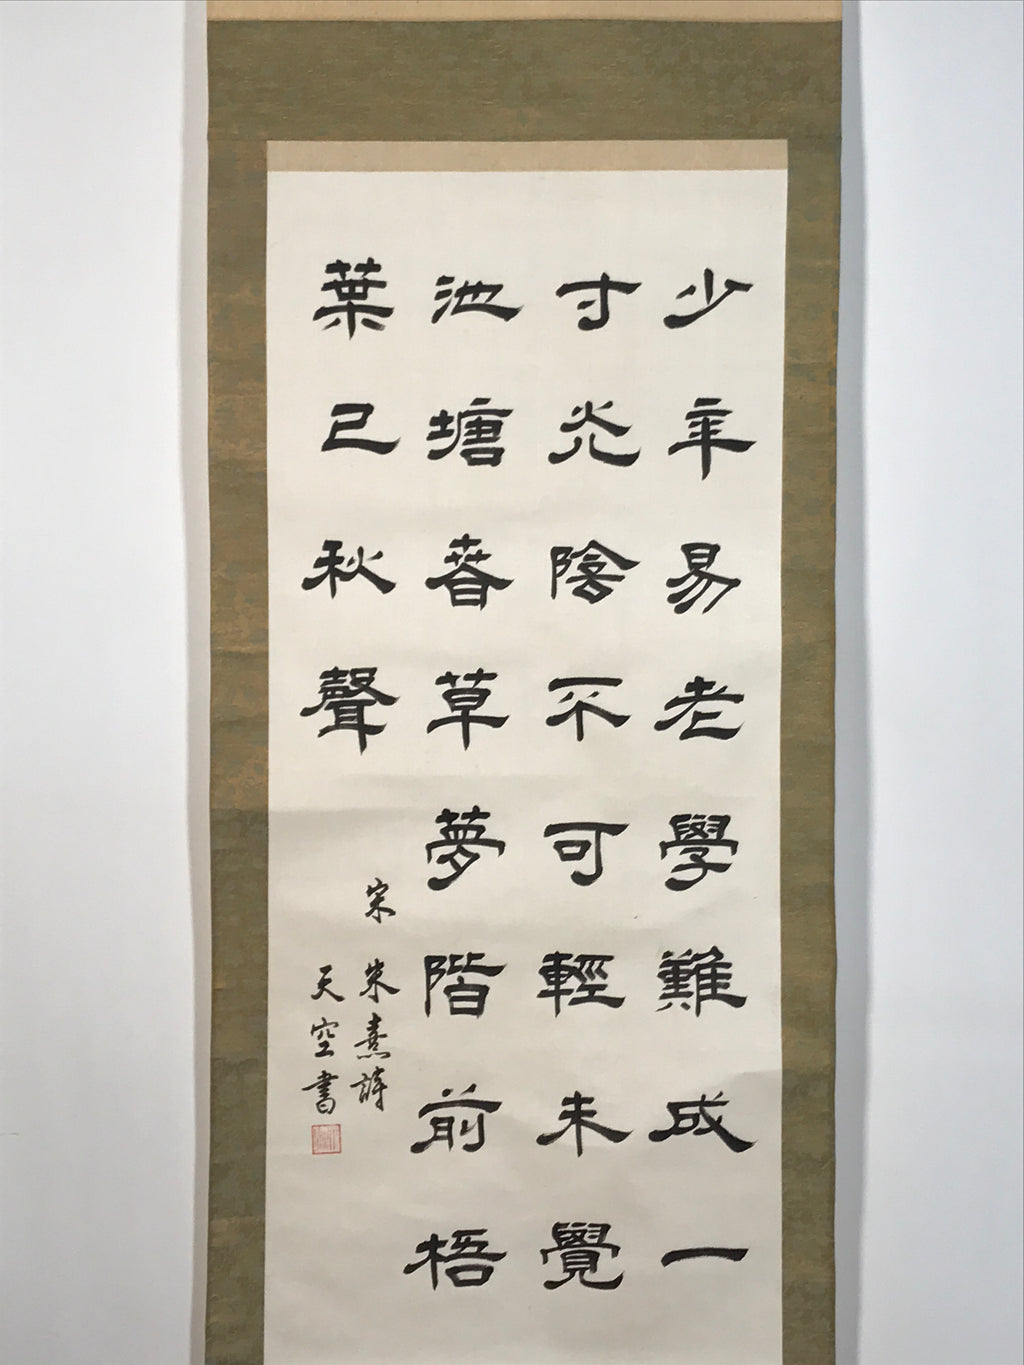 少年易老學難成一
寸光陰不可輕未覺
池塘春草夢階前梧
葉已秋聲
宋 朱熹詩
天空書